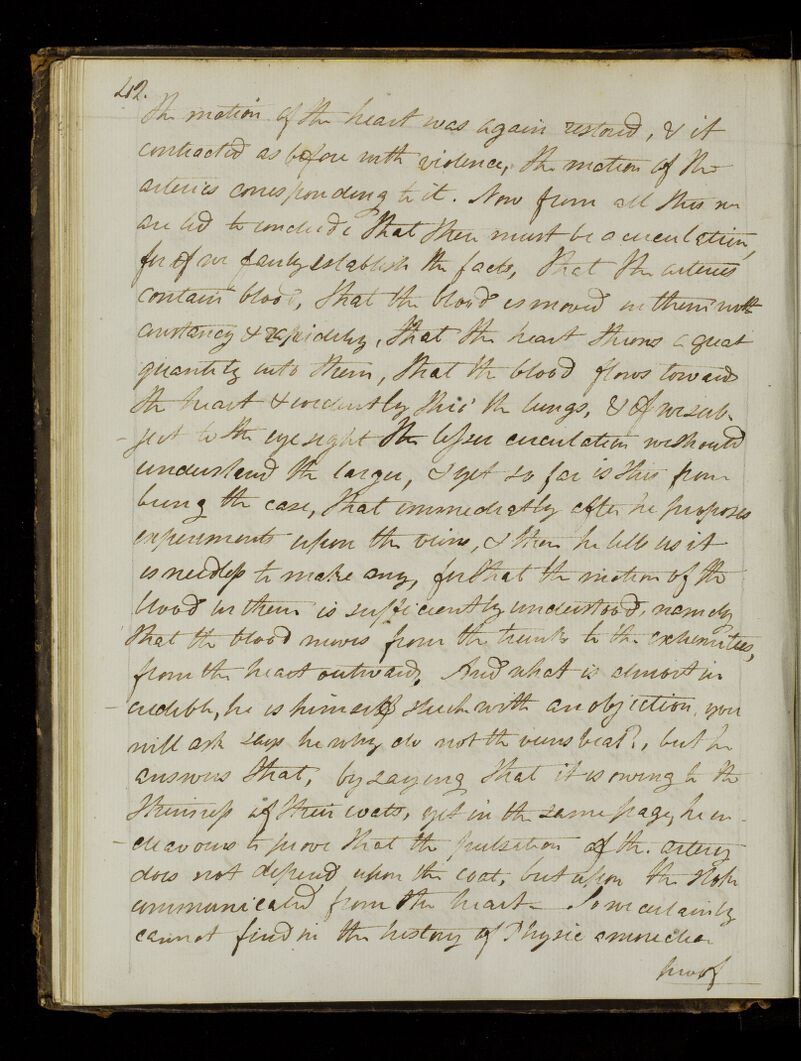 42.
The motion of the heart was again restored, & it
contracted as before with violence, the motion of the
arteries corresponding to it. Now from all this we
are led to conclude that there must be a circulation,
for if we fairly establish the facts, that the arteries
contain blood, that the blood is moved in them with
constancy & rapidity, that the heart throws a great
quantity into them, that the blood flows towards
the heart & evidently thro' the lungs, & if we sub-
-ject to the eye sight the lesser circulation we should
understand the larger, & yet so far is this from
being the case, that immediately after he proposes
experiments upon the veins, & then he tells us it
is needless to make any, for that the motion of the
blood in them is sufficiently understood, namely
that the blood moves from the trunks to the extremities,
from the heart outwards. And what is almost in
-credible, he is himself struck with an objection, you
will ask says he why do not the veins beat?, but he
answers that, by saying that it is owing to the
thinness of their coats, yet in the same page, he en-
-deavours to prove that the pulsation of the artery
does not depend upon the coat, but upon the stroke
communicated from the heart — So we certainly
cannot find in the history of Physic a more clear
proof